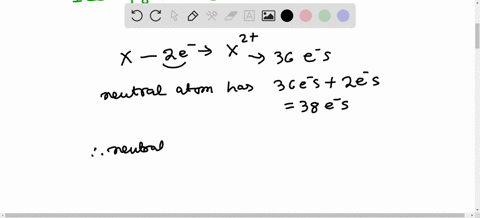 X − 2e⁻ → X²⁺ → 36 e⁻s
neutral atom has 36e⁻s + 2e⁻s
= 38 e⁻s
∴ neutral